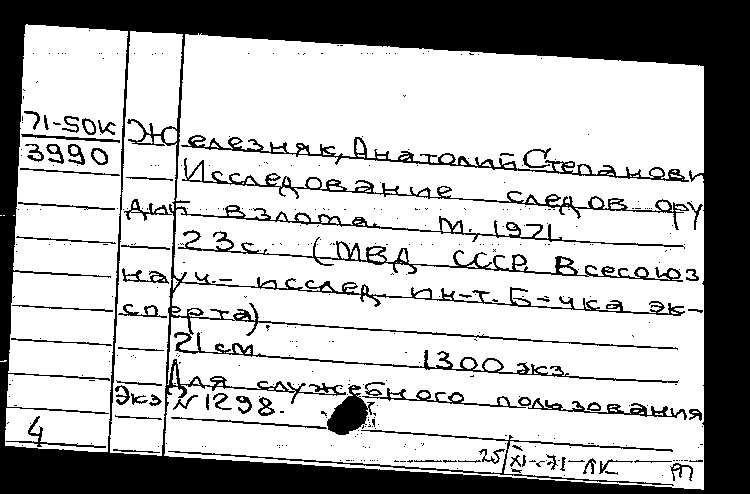 71-50К
3990
Железняк, Анатолий Степанови
Исследование следов ору
дий взлома. М., 1971.
23 с. (МВД СССР. Всесоюз.
науч.-исслед. ин-т. Б-чка эк-
сперта).
21 см. 1300 экз.
Для служебного пользования
Экз. №1298.
4
25/XI-71 ЛК